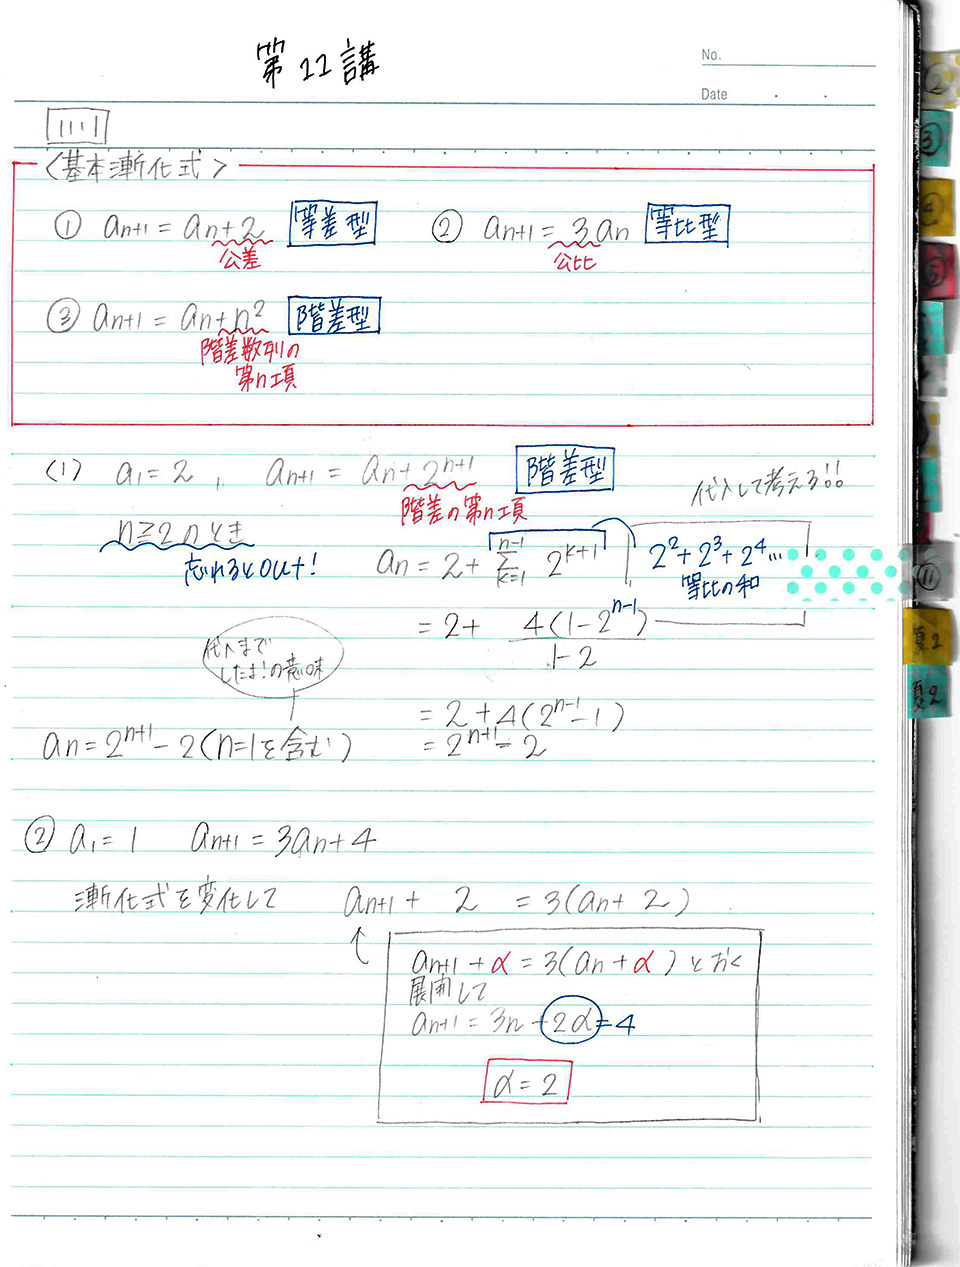 第22講
No.
Date
111・1
〈基本漸化式〉
① an+1 = an+2 等差型 ② an+1 = 3an 等比型
公差 公比
③ an+1 = an+n² 階差型
階差数列の
第n項
(1) a1=2, an+1 = an+2^{n+1} 階差型
代入して考える!!
階差の第n項
n≧2のとき
忘れるとout!
an = 2+ Σ_{k=1}^{n-1} 2^{k+1} 2²+2³+2⁴…
等比の和
= 2+ 4(1-2^{n-1}) / 1-2
代入まで
したよ!の意味
= 2+4(2^{n-1}-1)
an=2^{n+1}-2(n=1を含む) = 2^{n+1}-2
② a1=1 an+1=3an+4
漸化式を変化して an+1+ 2 = 3(an+2)
an+1+α=3(an+α)とおく
展開して
an+1=3n+2α=4
α=2
② ③ ④ ⑤ ⑪ 夏1 夏2